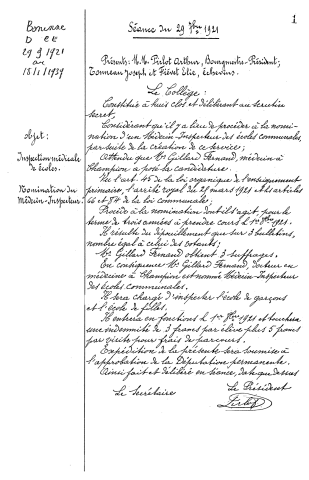 1
Boninne
D CE
29 9 1921
au
18/1/1939
Séance du 29 7bre 1921
Présents: M.M. Pirlot Arthur, Bourgmestre-Président;
Tonneau Joseph et Frévet Elie, échevins.
Le Collège:
Constitué à huis clos et délibérant au scrutin
secret,
Considérant qu'il y a lieu de procéder à la nomi-
nation d'un Médecin-Inspecteur des écoles communales,
par suite de la création de ce service;
Objet:
Inspection médicale
de écoles.
Nomination du
Médecin-Inspecteur.
Attendu que Mr Gillard Fernand, médecin à
Champion a posé la candidature.
Vu l'art. 45 de la loi organique de l'enseignement
primaire, l'arrêté royal du 21 mars 1921 et les articles
66 et 54 de la loi communale;
Procède à la nomination dont il s'agit pour le
terme de trois années à prendre cours le 1er 8bre 1921.
Il résulte du dépouillement que sur 3 bulletins,
nombre égal à celui des votants;
Mr Gillard Fernand obtient 3 suffrages.
En conséquence Mr Gillard Fernand, docteur en
médecine à Champion est nommé Médecin-Inspecteur
des écoles communales.
Il sera chargé d'inspecter l'école de garçons
et l'école de filles.
Il entrera en fonctions le 1er 8bre 1921 et touchera
une indemnité de 3 francs par élève plus 5 francs
par visite pour frais de parcours.
Expédition de la présente sera soumise à
l'approbation de la Députation permanente.
Ainsi fait et délibéré en séance, date que dessus
Le Secrétaire
Le Président
Pirlot